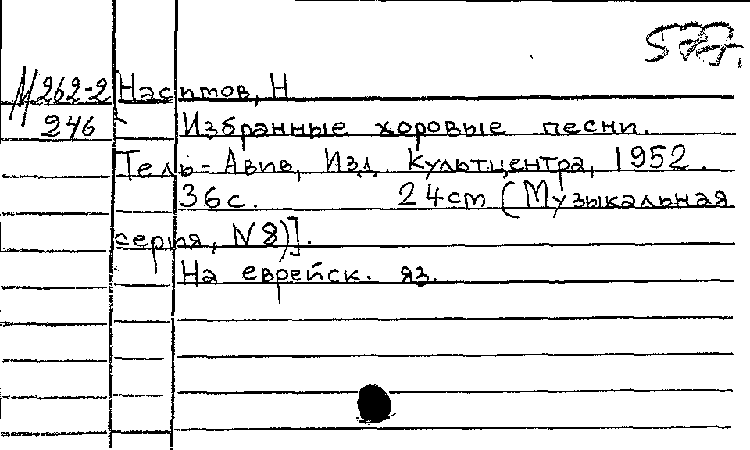 577.
М 262-2 Насимов, Н
246 Избранные хоровые песни.
Тель-Авив, Изд. Культцентра, 1952.
36с. 24cm (Музыкальная
серия, N8)].
На еврейск. яз.